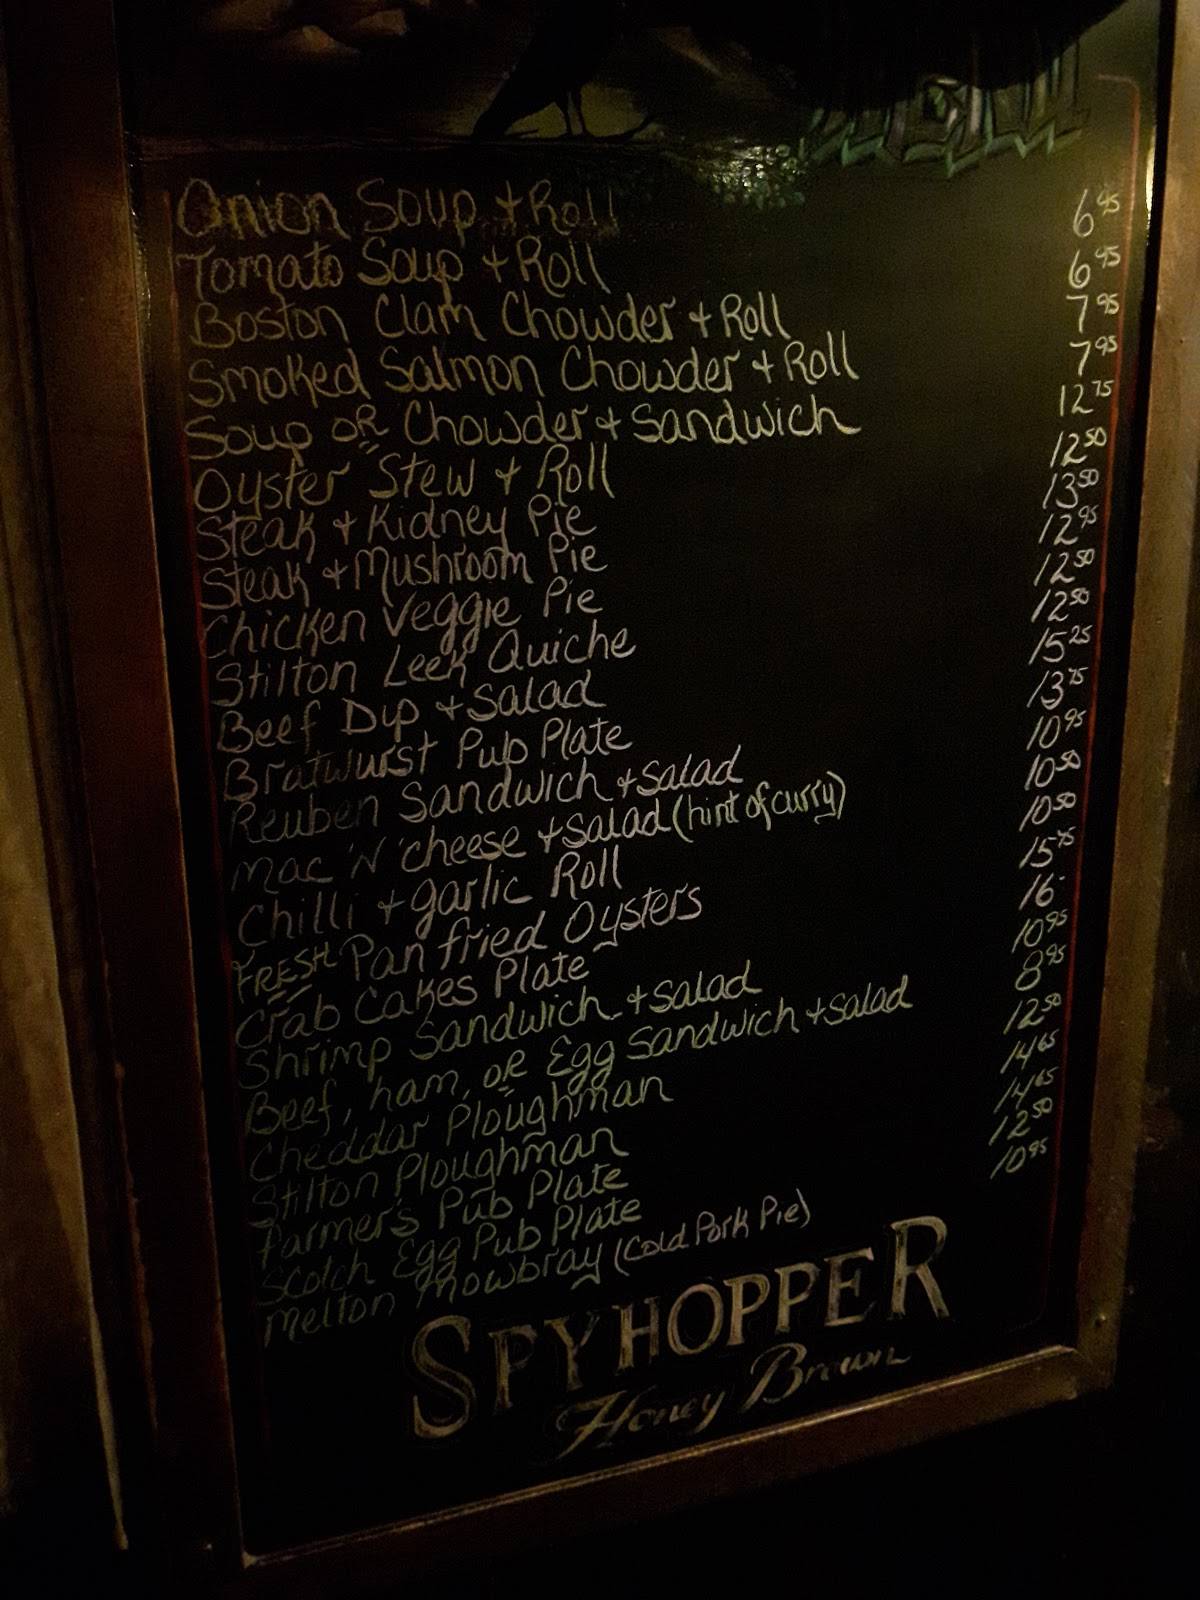 MENU
Onion Soup + Roll 6 95
Tomato Soup + Roll 6 95
Boston Clam Chowder + Roll 7 95
Smoked Salmon Chowder + Roll 7 95
Soup OR Chowder + Sandwich 12 75
Oyster Stew + Roll 12 50
Steak + Kidney Pie 13 50
Steak + Mushroom Pie 12 95
Chicken Veggie Pie 12 50
Stilton Leek Quiche 12 50
Beef Dip + Salad 15 25
Bratwurst Pub Plate 13 75
Reuben Sandwich + Salad 10 95
Mac 'N' Cheese + Salad (hint of curry) 10 50
Chilli + garlic Roll 10 50
FRESH Pan fried Oysters 15 75
Crab Cakes Plate 16-
Shrimp Sandwich + Salad 10 95
Beef, ham, OR Egg Sandwich + Salad 8 95
Cheddar Ploughman 12 50
Stilton Ploughman 14 65
Farmer's Pub Plate 14 65
Scotch Egg Pub Plate 12 50
Melton Mowbray (Cold Pork Pie) 10 95
SPYHOPPER
Honey Brown